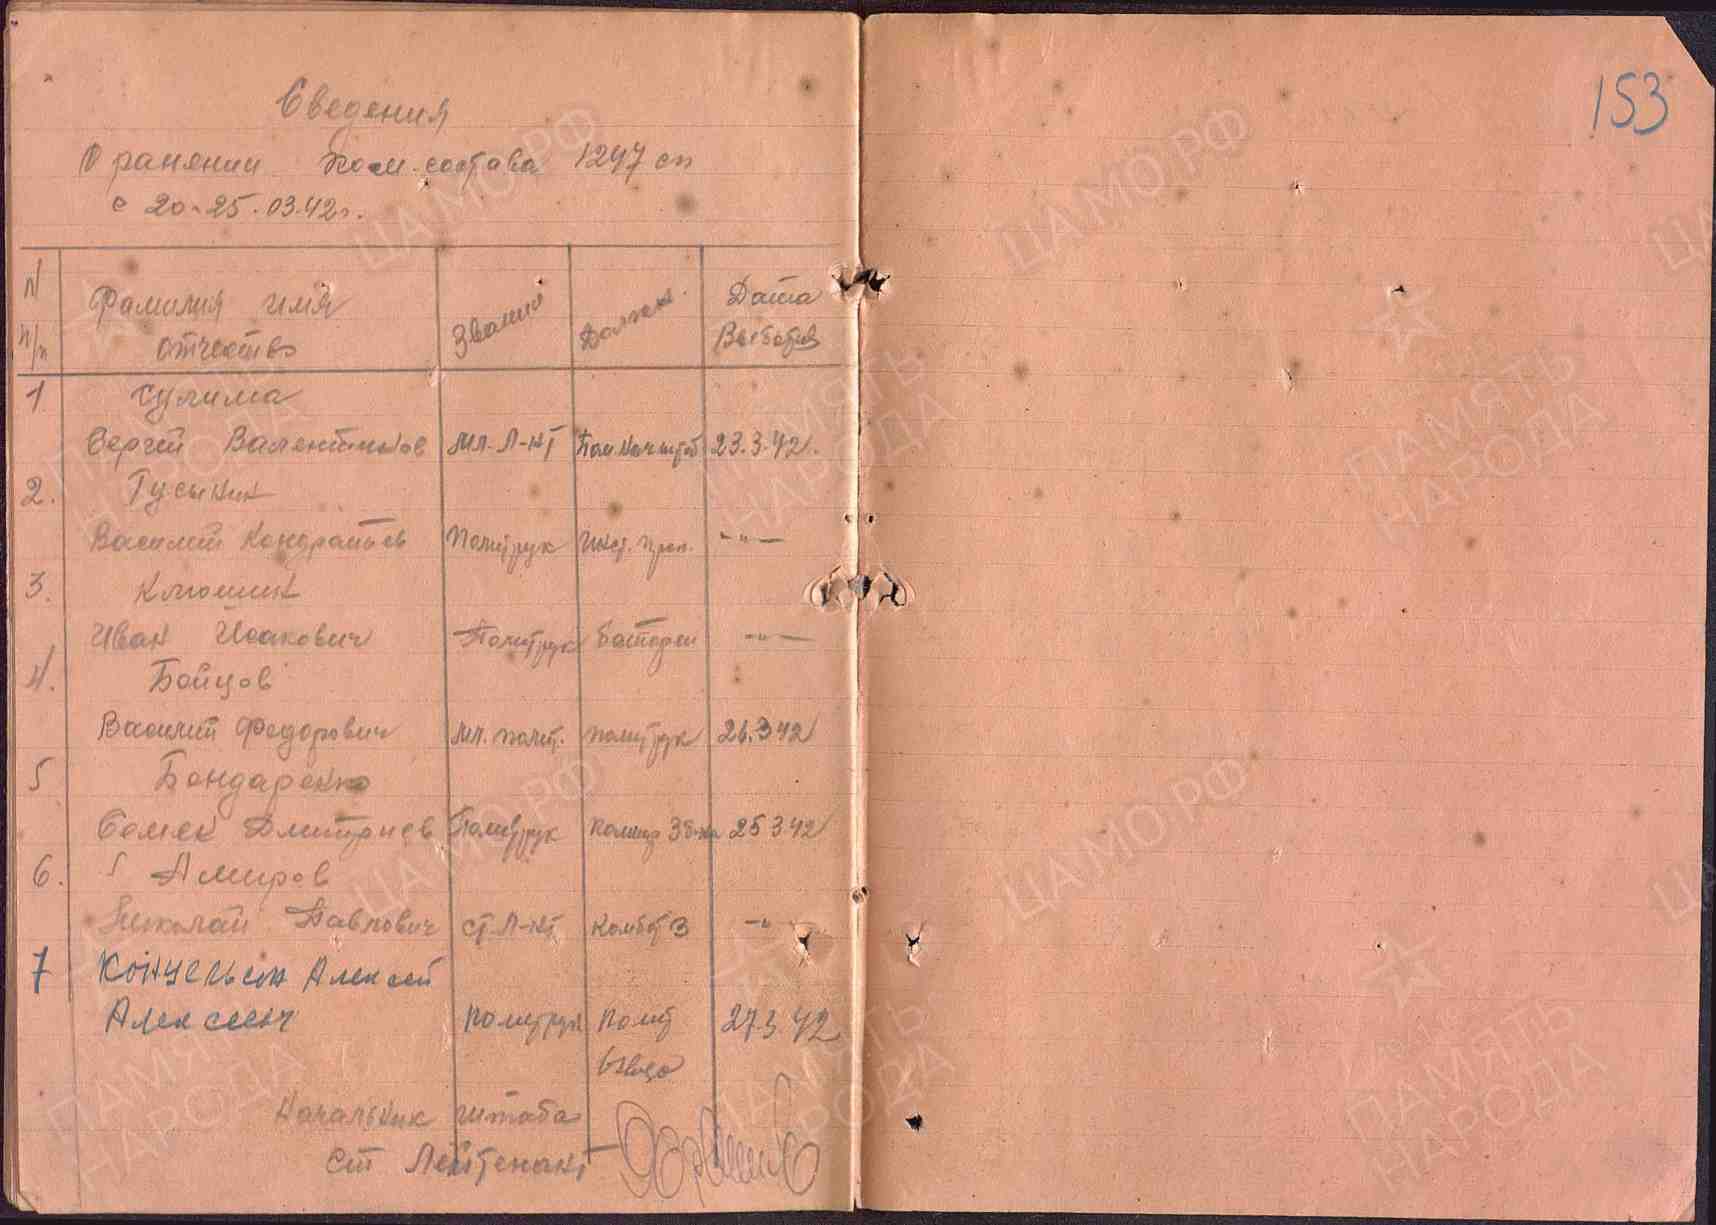 153
Сведения
О ранении Ком. состава 1247 сп
с 20-25.03.42г.
N п/п Фамилия имя отчество Звание Должн. Дата Выбытия
1 Сулима
Сергей Валентинов Мл. Л-нт Пом. Нач штаб 23.3.42.
2. Гусынин
Василий Кондратьев Политрук Инст. проп. -"-
3. Клюшин
Иван Исакович Политрук батареи -"-
4. Бойцов
Василий Федорович Мл. полит. политрук 26.3 42
5 Бондаренко
Семен Дмитриев Политрук 25 3 42
6. Амиров
Николай Павлович ст. Л-нт Комбат 3 -"-
7 Алексей
Алексееич Политрук Полит 27.3.42
взвода
Начальник штаба
ст Лейтенант
ЦАМО РФ
ПАМЯТЬ
НАРОДА